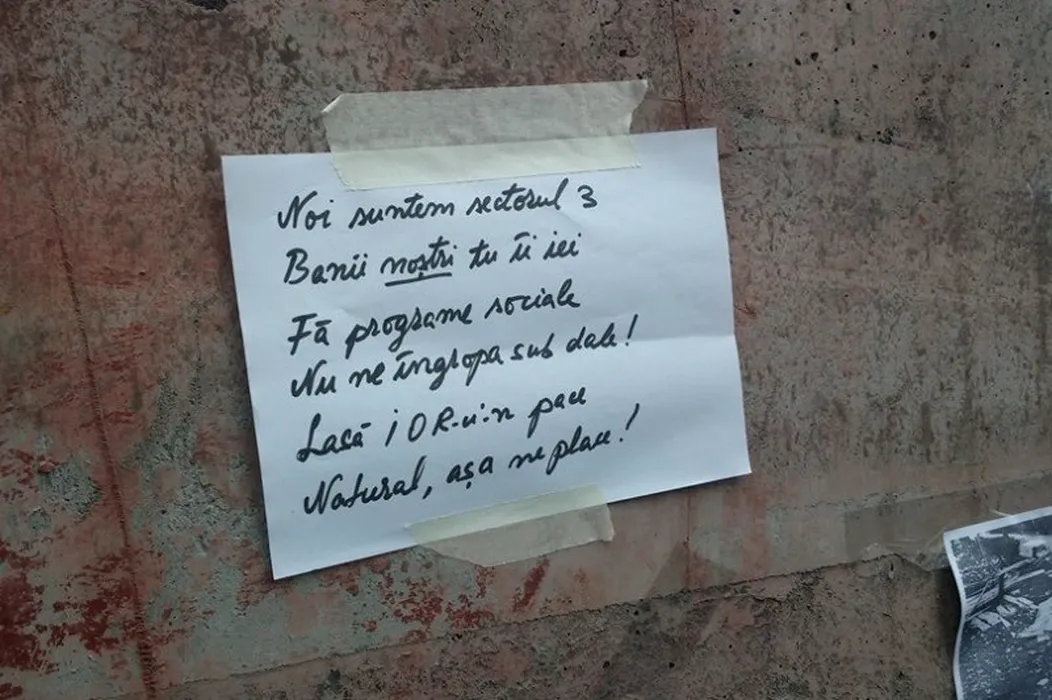 Noi suntem sectorul 3
Banii noștri tu îi iei
Fă programe sociale
Nu ne îngropa sub dale!
Lasă IOR-u-n pace
Natural, așa ne place!